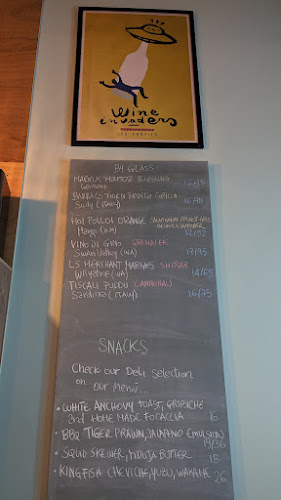 Wine
invaders
BY GLASS
MARCUS MOLITOR RIESLING
Germany
Sicily (ITALY) 16/70
HOI POLLOI ORANGE
Margs (WA)
VINO DI GINO GRENACHE
Swan Valley (WA) 17/75
LS MERCHANT MARGHES SHIRAZ
Wilyabrup (WA) 14/65
TISCALI PUDDU CANNONAU
Sardinia (ITALY) 16/75
SNACKS
Check our Deli selection
on our menu...
• WHITE ANCHOVY TOAST, GRIBICHE
and HOME MADE FOCACCIA 16
• BBQ TIGER PRAWN, JALAPENO EMULSION
• SQUID SKEWER, NDUJA BUTTER 18
• KINGFISH CHEVICHE, YUZU, WAKAME 26